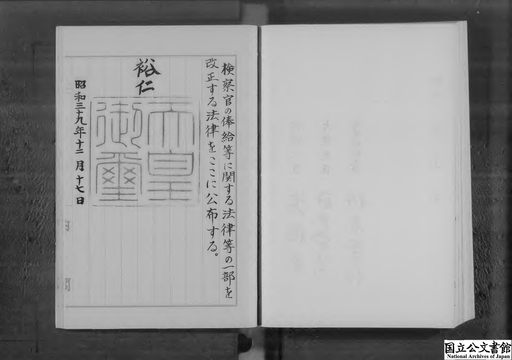 検察官の俸給等に関する法律等の一部を
改正する法律をここに公布する。
裕仁
天皇
御璽
昭和三十九年十二月十七日
国立公文書館
National Archives of Japan